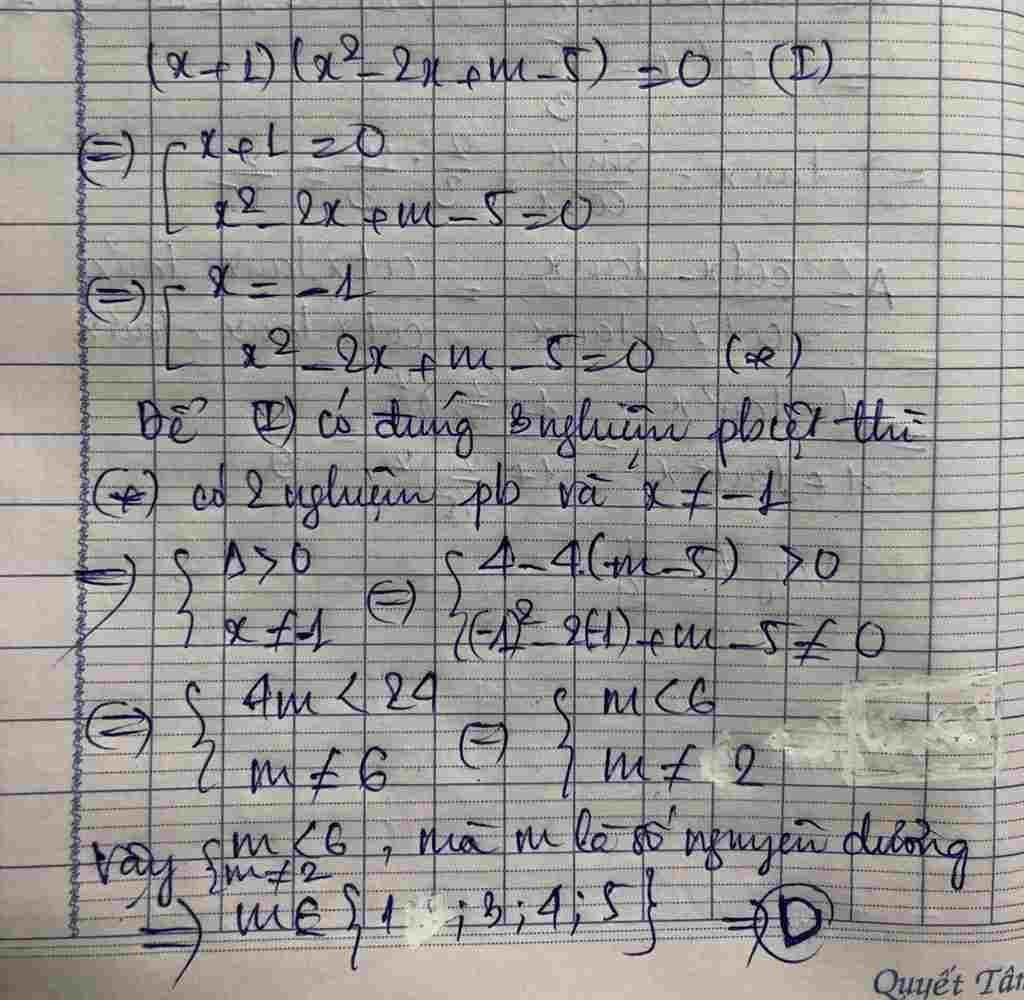 (x+1)(x²-2x+m-5) =0 (I)
(=) [ x+1 =0
x²-2x+m-5=0
(=) [ x = -1
x²-2x+m-5=0 (*)
Để (I) có đúng 3 nghiệm pbiệt thì
(*) có 2 nghiệm pb và x ≠ -1
=) { Δ>0 (=) { 4-4.(m-5) >0
x ≠ -1 (-1)²-2(-1)+m-5 ≠ 0
(=) { 4m < 24 (=) { m<6
m ≠ 6 m ≠ 2
Vậy { m<6 , mà m là số nguyên dương
m≠2
=) m∈ {1 ; 3 ; 4 ; 5} =) D
Quyết Tâm